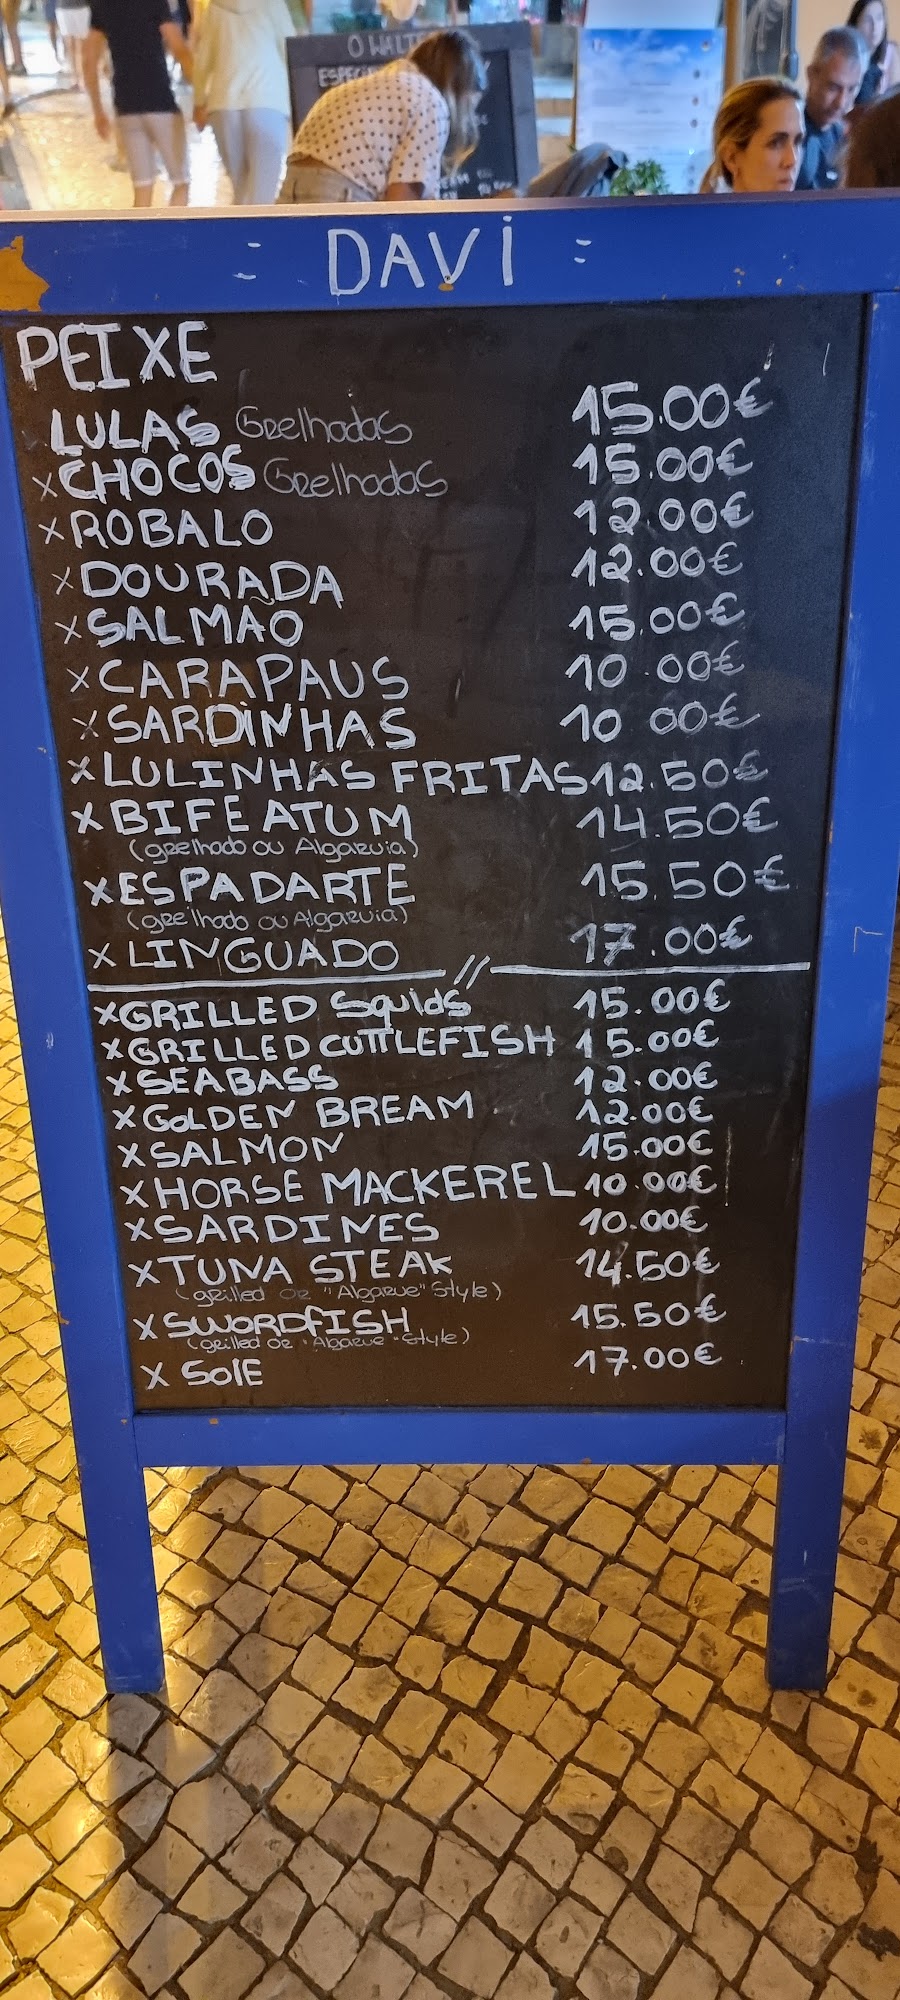 O WALT
ESPECI
= DAVI =
PEIXE
LULAS Grelhadas 15.00€
x CHOCOS Grelhadas 15.00€
x ROBALO 12.00€
x DOURADA 12.00€
x SALMÃO 15.00€
x CARAPAUS 10.00€
x SARDINHAS 10 00€
x LULINHAS FRITAS 12.50€
x BIFE ATUM 14.50€
(grelhado ou Algarvia)
x ESPADARTE 15.50€
(grelhado ou Algarvia)
x LINGUADO 17.00€
//
x GRILLED Squids 15.00€
x GRILLED CUTTLEFISH 15.00€
x SEABASS 12.00€
x GOLDEN BREAM 12.00€
x SALMON 15.00€
x HORSE MACKEREL 10.00€
x SARDINES 10.00€
x TUNA STEAK 14.50€
(grilled or "Algarve" Style)
x SWORDFISH 15.50€
(grilled or "Algarve" Style)
x SOlE 17.00€